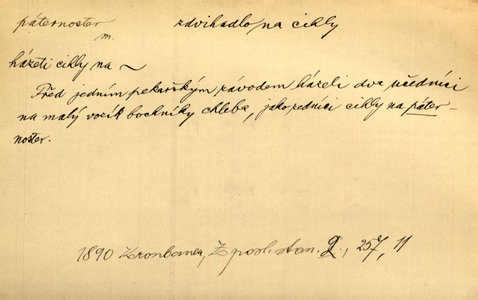 páternoster zdvihadlo na cihly
m.
házeti cihly na ~
Před jedním pekařským závodem házeli dva učedníci
na malý vozík bochníky chleba, jako zedníci cihly na páter-
noster.
1890 Kronbauer, Z posl. stan. 2, 257, 11